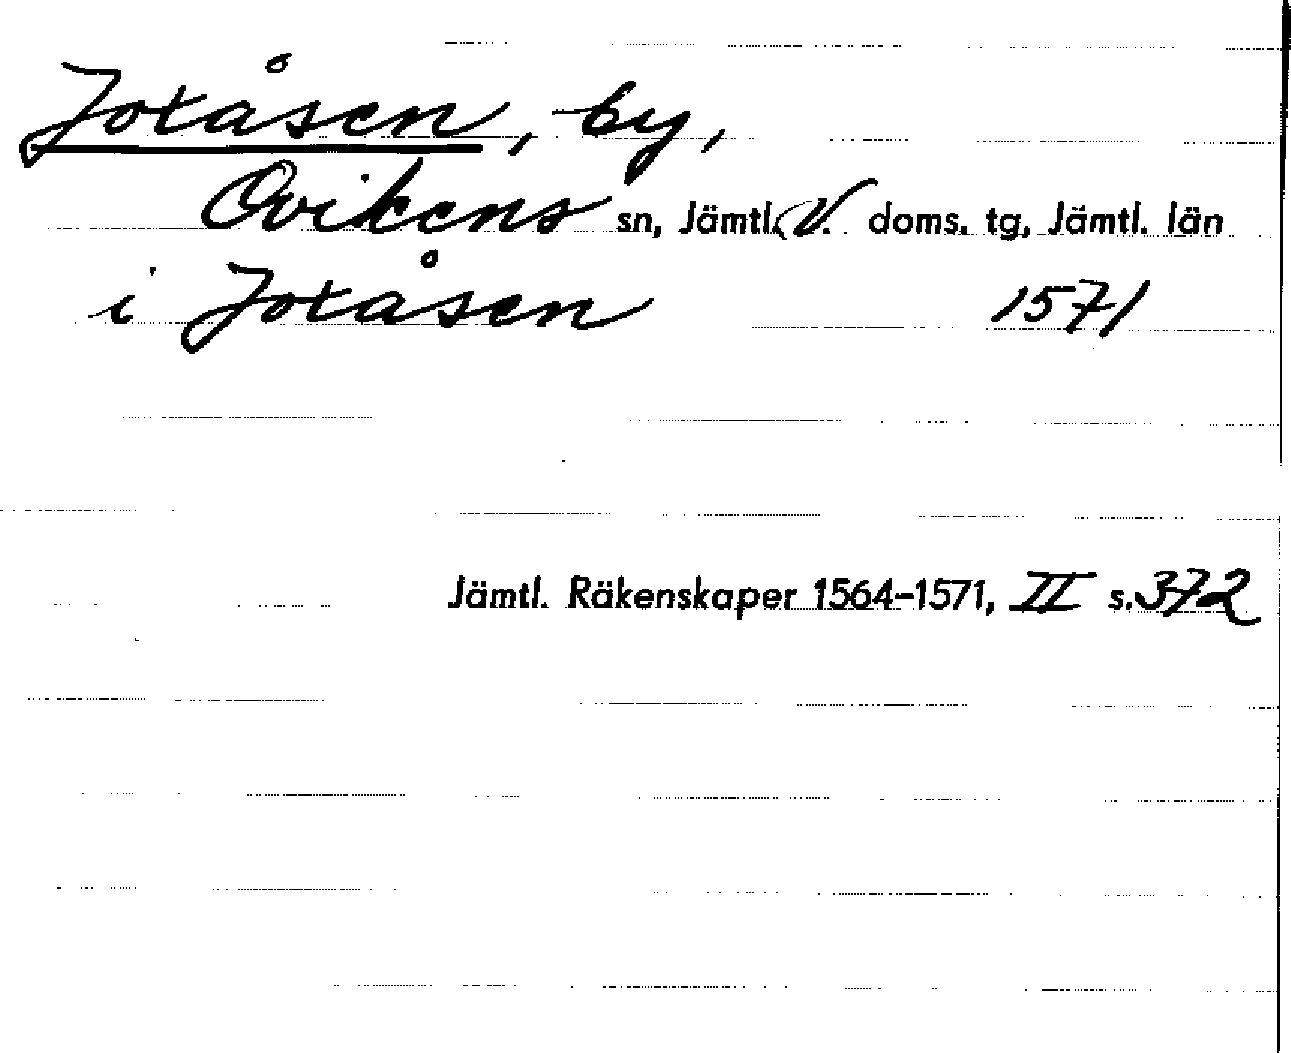 Joxåsen, by,
Ovikens sn, Jämtl. V. doms. tg, Jämtl. län
i Joxåsen 1571
Jämtl. Räkenskaper 1564-1571, II s. 372